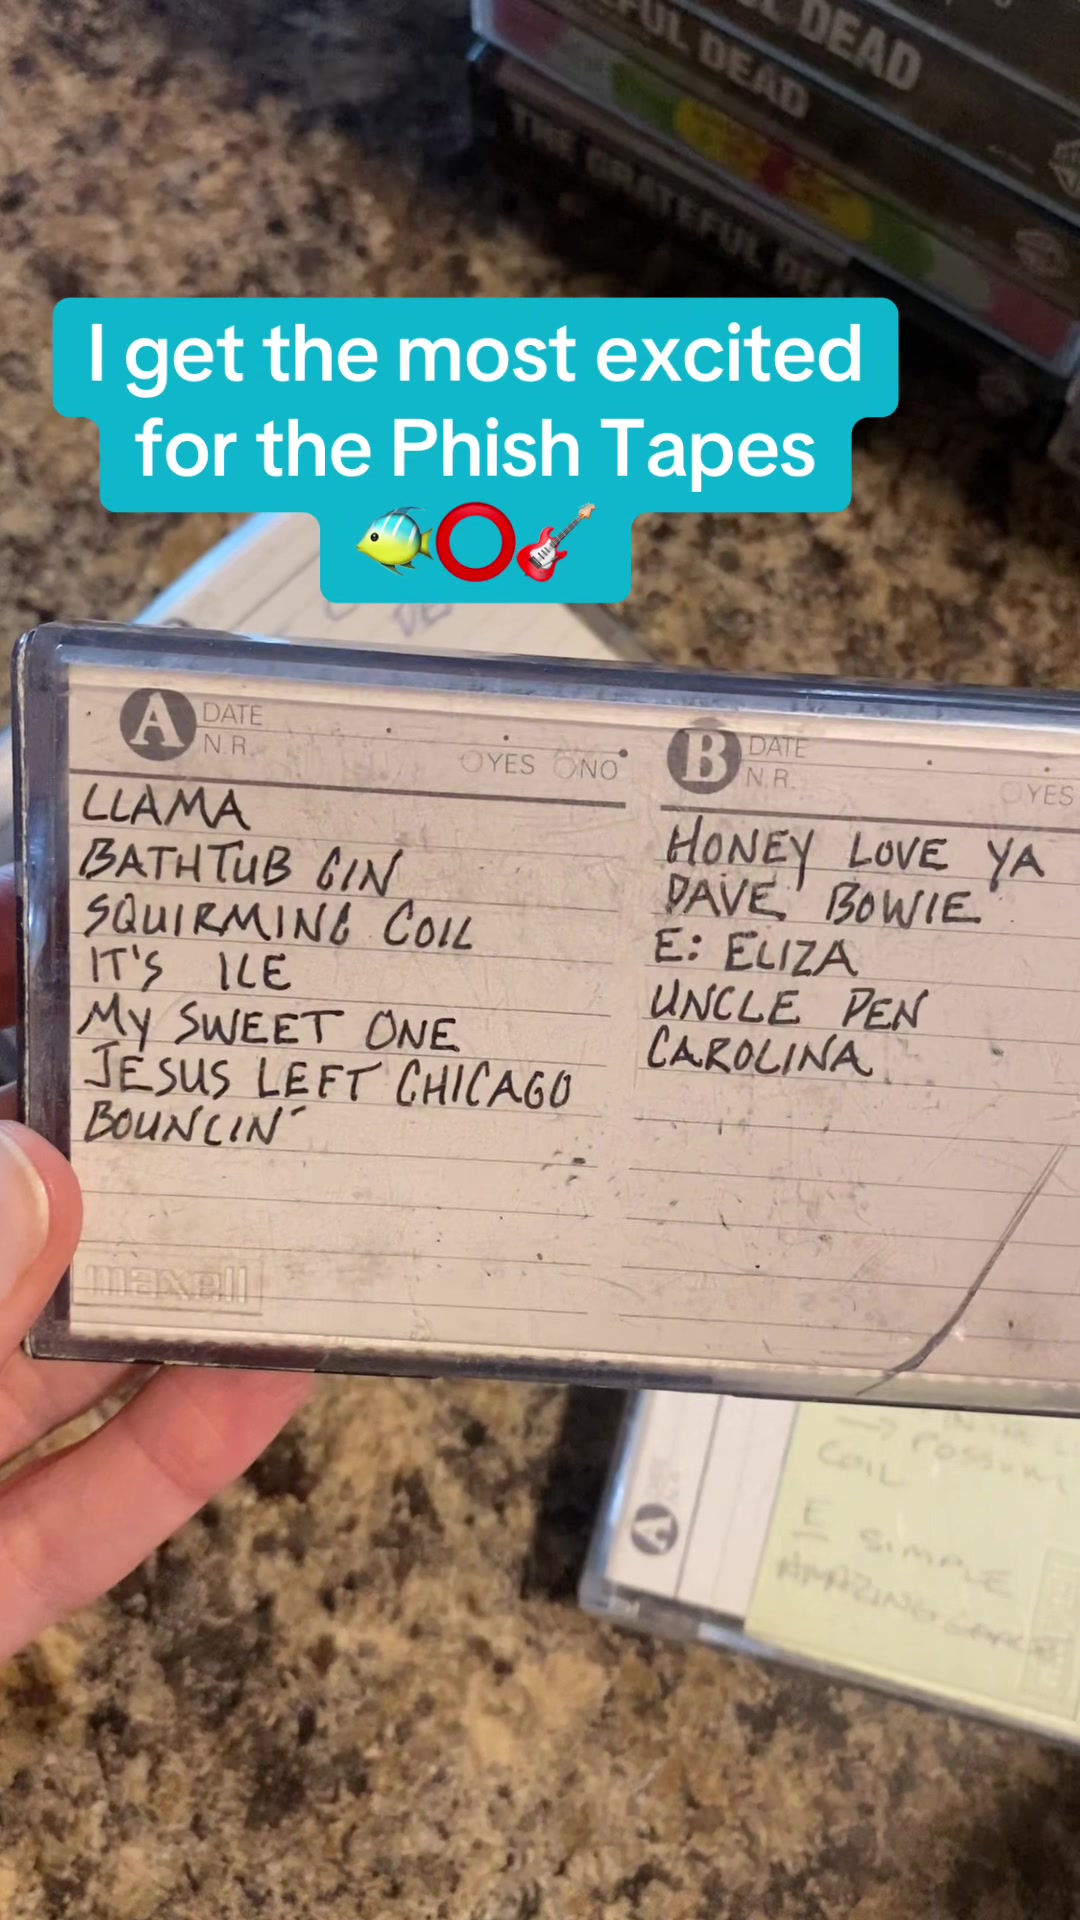 FUL DEAD
FUL DEAD
THE GRATEFUL DEA
I get the most excited
for the Phish Tapes
A DATE
N.R. YES NO
LLAMA
BATHTUB GIN
SQUIRMING COIL
IT'S ICE
MY SWEET ONE
JESUS LEFT CHICAGO
BOUNCIN'
maxell
B DATE
N.R. YES
HONEY LOVE YA
DAVE BOWIE
E: ELIZA
UNCLE PEN
CAROLINA
A
IN THE
→ POSSUM
COIL
E SIMPLE
AMAZING GRACE